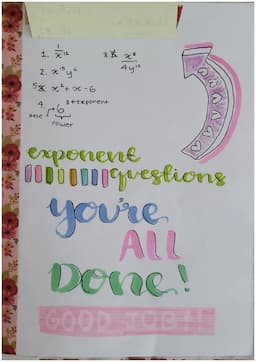 1. 1/x¹²
3. x⁸/4y¹⁰
2. x¹⁵y⁶
5. x² + x - 6
4. 6³ ← exponent
base
power
exponent
questions
you're
ALL
Done!
GOOD JOB!!